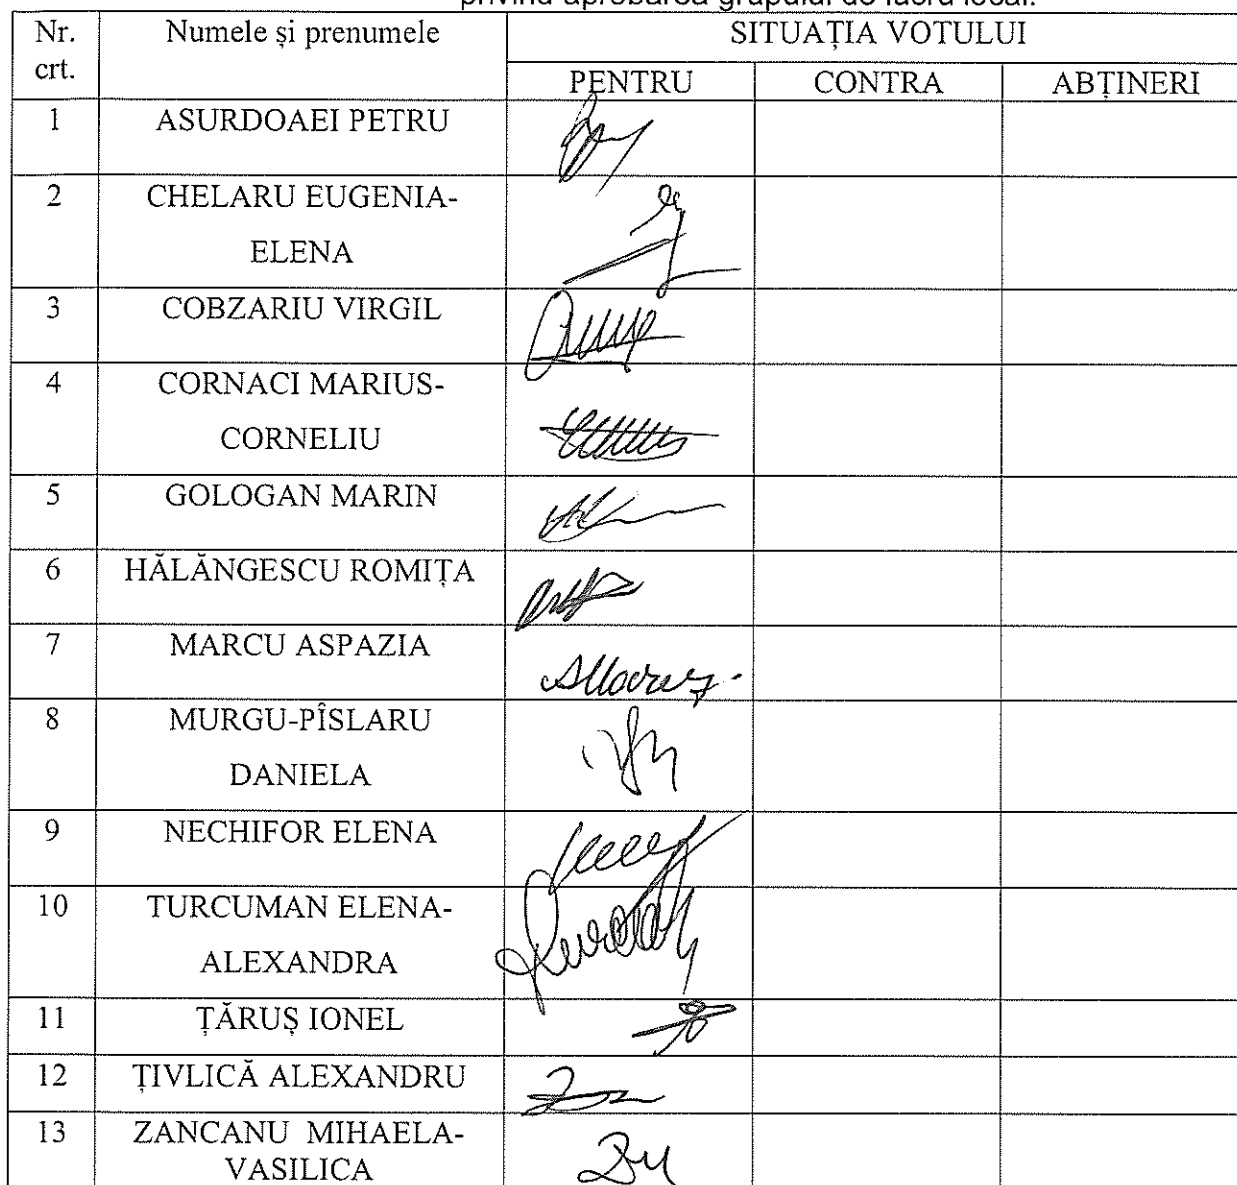 privind aprobarea grupului de lucru local.
Nr. crt. Numele și prenumele SITUAȚIA VOTULUI
PENTRU CONTRA ABȚINERI
1 ASURDOAEI PETRU
2 CHELARU EUGENIA-
ELENA
3 COBZARIU VIRGIL
4 CORNACI MARIUS-
CORNELIU
5 GOLOGAN MARIN
6 HĂLĂNGESCU ROMIȚA
7 MARCU ASPAZIA
8 MURGU-PÎSLARU
DANIELA
9 NECHIFOR ELENA
10 TURCUMAN ELENA-
ALEXANDRA
11 ȚĂRUȘ IONEL
12 ȚIVLICĂ ALEXANDRU
13 ZANCANU MIHAELA-
VASILICA